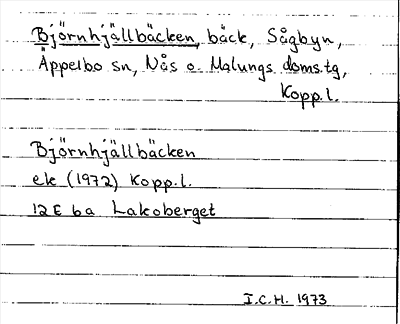 Björnhjällbäcken, bäck, Sågbyn,
Äppelbo sn, Nås o. Malungs doms.tg,
Kopp.l.
Björnhjällbäcken
ek (1972) Kopp.l.
12E 6a Lakoberget
I.C.H. 1973